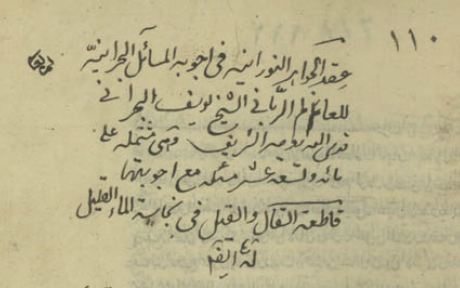 ١١٠
عقد الجواهر النورانيه فى اجوبه المسائل البحرانيّه
للعالم الربّانى الشيخ يوسف البحرانى
قدس الله روحه الشريف وهى مشتمله على
مائه وتسعة عشر مسئله مع اجوبتها
قاطعة القال والقيل فى نجاسة الماء القليل
له ايضا